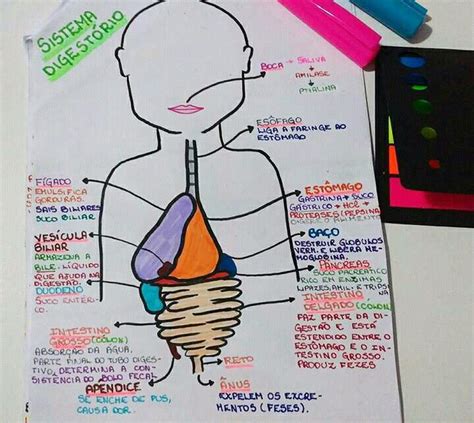 SISTEMA
DIGESTÓRIO
BOCA → SALIVA
+
AMILASE
+
PTIALINA
ESÔFAGO
LIGA A FARINGE AO
ESTÔMAGO
FÍGADO
EMULSIFICA
GORDURAS.
SAIS BILIARES
SUCO BILIAR
VESÍCULA
BILIAR
ARMAZENA A
BILE. LÍQUIDO
QUE AJUDA NA
DIGESTÃO.
DUODENO
SUCO ENTÉRI-
CO.
INTESTINO
GROSSO (CÓLON)
ABSORÇÃO DA ÁGUA.
PARTE FINAL DO TUBO DIGES-
TIVO, DETERMINA A CON-
SISTENCIA DO BOLO FECAL
APÊNDICE
SE ENCHE DE PUS,
CAUSA DOR.
ESTÔMAGO
GASTRINA → SUCO
GÁSTRICO → HCL +
PROTEASES (PEPSINA)
DIGERE O ALIMENTO
BAÇO
DESTRUIR GLOBULOS
VERM. E LIBERA HE-
MOGLOBINA.
PÂNCREAS
SUCO PACREÁTICO
RICO EM ENZIMAS
INTESTINO
DELGADO (CÓLON)
FAZ PARTE DA DI-
GESTÃO E ESTÁ
ESTENDIDO ENTRE O
ESTÔMAGO E O IN-
TESTINO GROSSO.
PRODUZ FEZES
RETO
ÂNUS
EXPELEM OS EXCRE-
MENTOS (FESES).